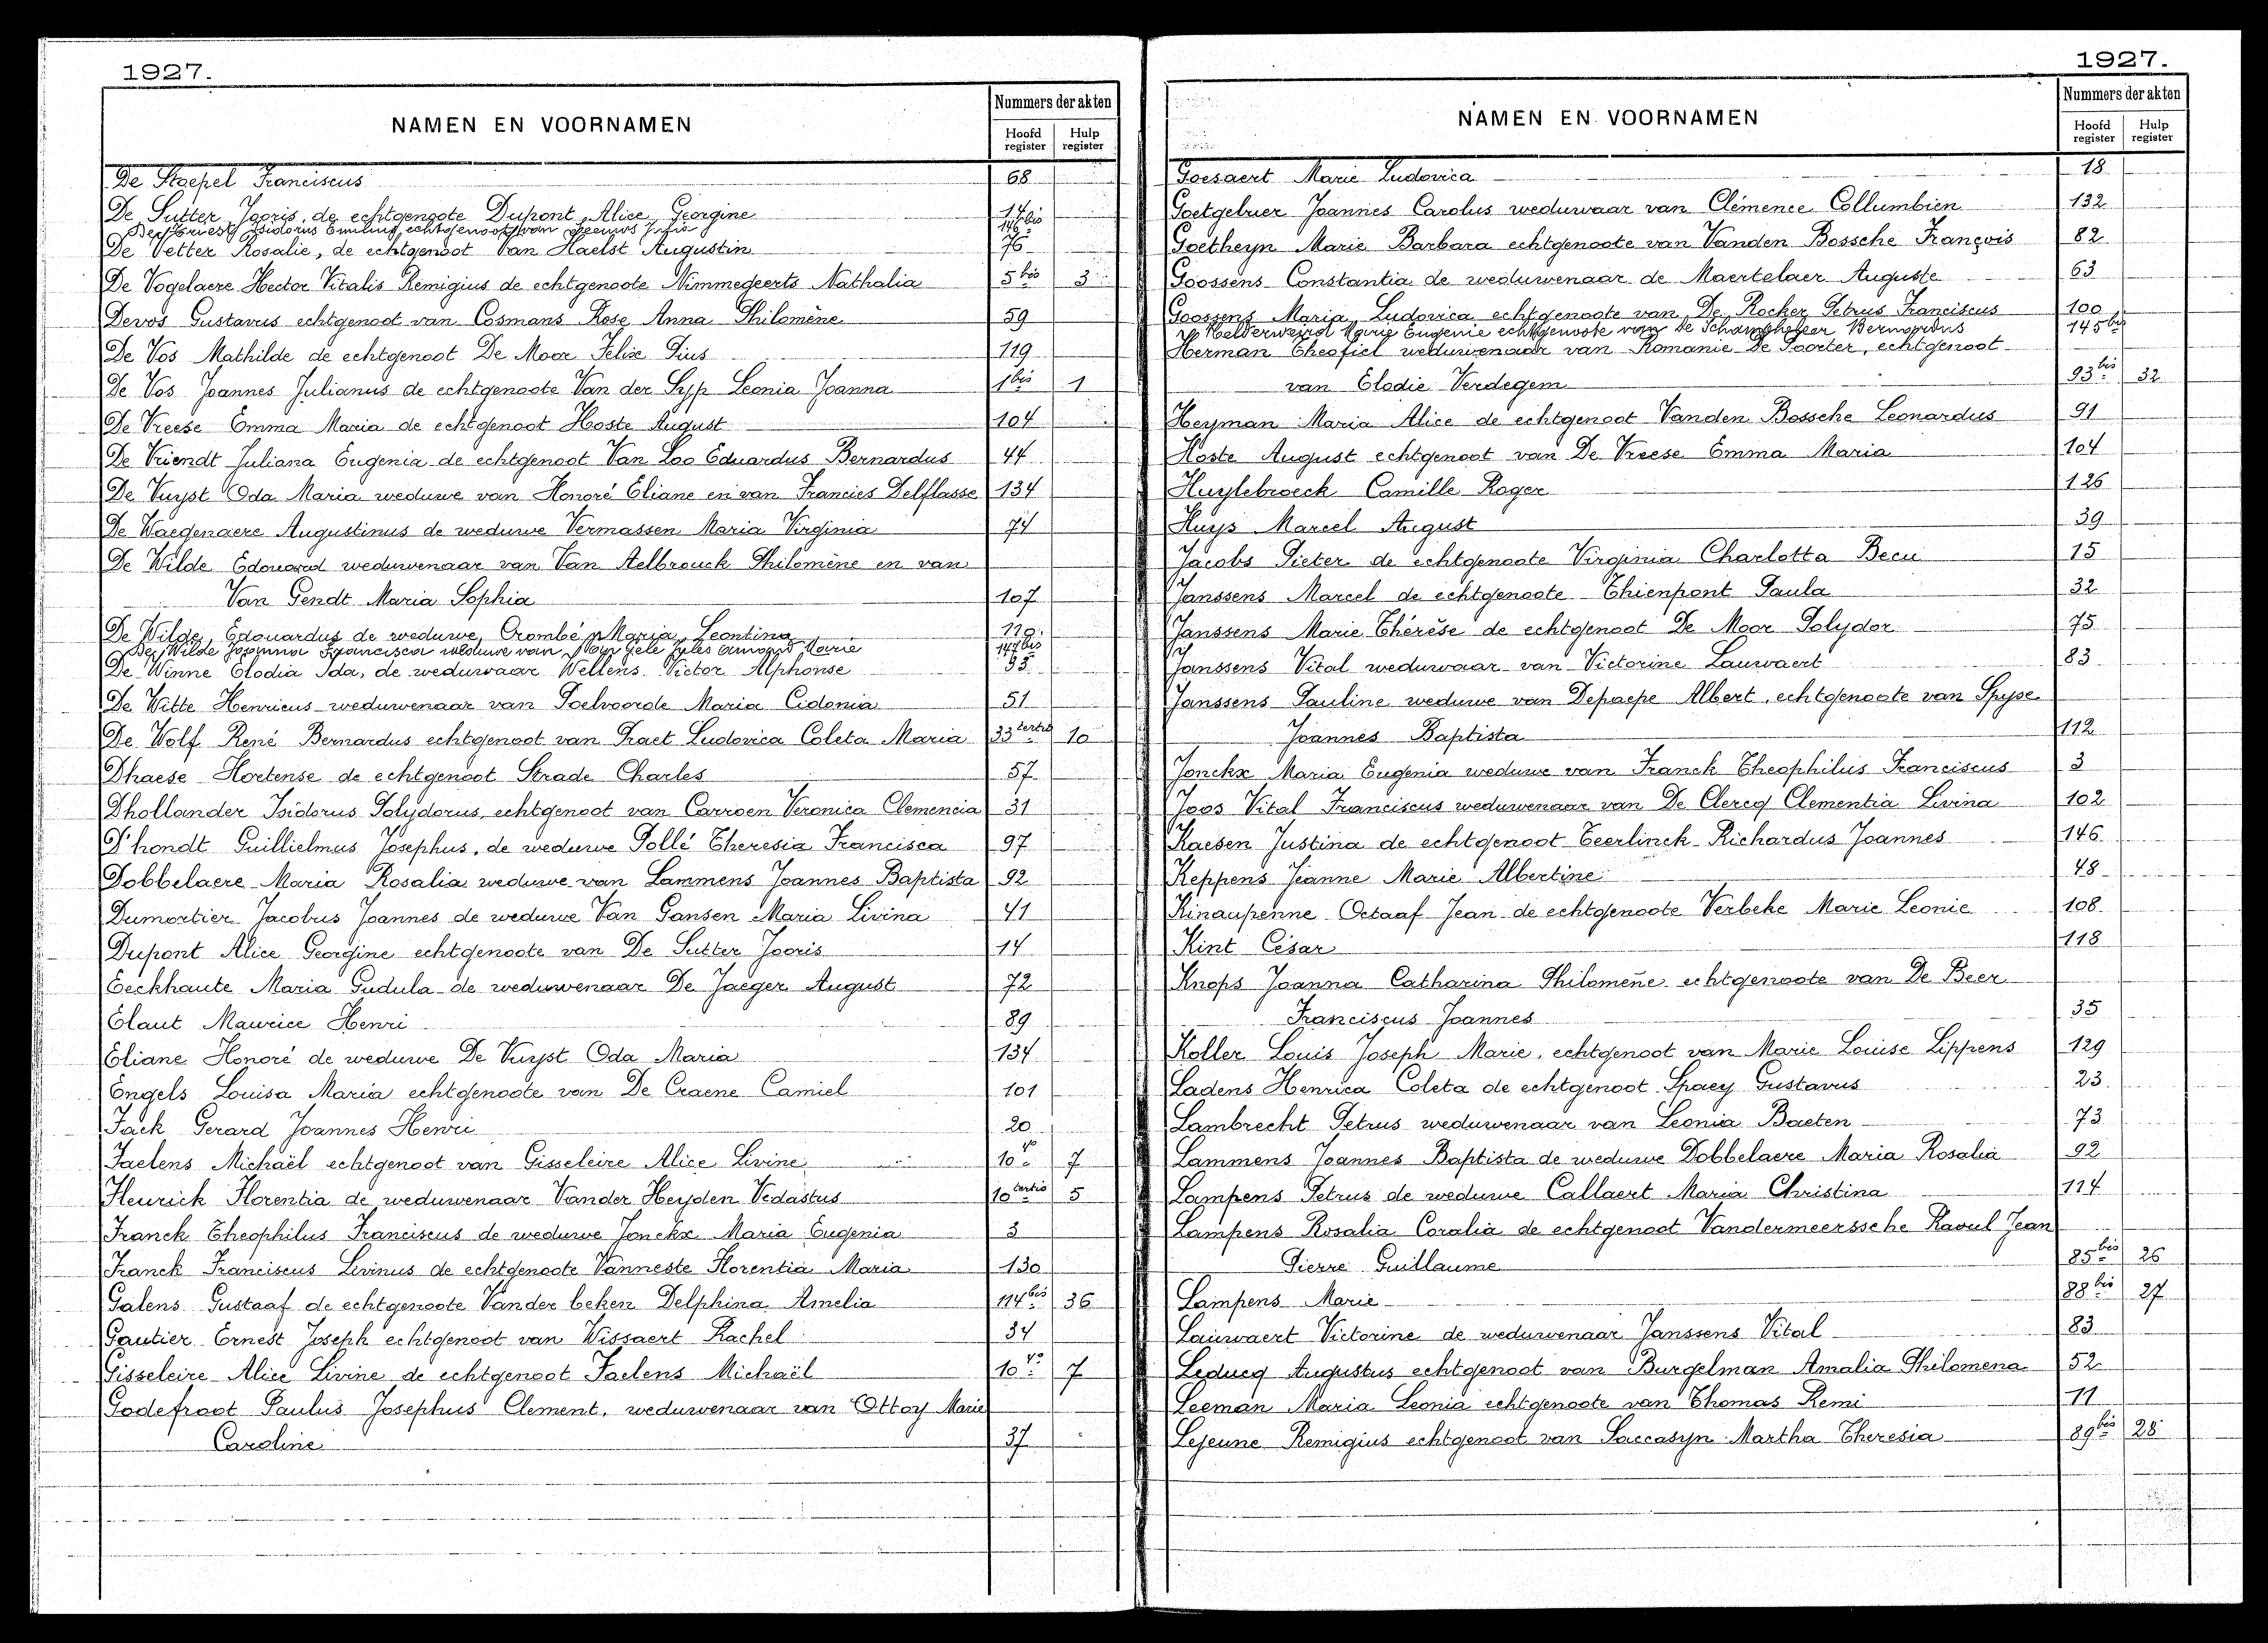 1927.
NAMEN EN VOORNAMEN
Nummers der akten
Hoofd register Hulp register
De Staepel Franciscus 68
De Sutter Jooris, de echtgenoote Dupont, Alice Georgine 14
Isidorus Emilius, echtgenoot van 146 bis
De Vetter Rosalie, de echtgenoot Van Haelst Augustin 76
De Vogelaere Hector Vitalis Remigius de echtgenoote Nimmegeerts Nathalia 5 bis 3
Devos Gustavus echtgenoot van Cosmans Rose Anna Philomène 59
De Vos Mathilde de echtgenoot De Moor Felix Pius 119
De Vos Joannes Julianus de echtgenoote Van der Syp Leonia Joanna 1 bis 1
De Vreese Emma Maria de echtgenoot Hoste August 104
De Vriendt Juliana Eugenia de echtgenoot Van Loo Eduardus Bernardus 44
De Vuyst Oda Maria weduwe van Honoré Eliane en van Francies Delflasse 134
De Waegenaere Augustinus de weduwe Vermassen Maria Virginia 74
De Wilde Edouard weduwenaar van Van Aelbrouck Philomène en van
Van Gendt Maria Sophia 107
De Wilde, Edouardus de weduwe, Crombé Maria Leontina
De Wilde Joanna Francisca weduwe van Van Gele Jules Amand Marie
De Winne Elodia Ida, de weduwaar Wellens Victor Alphonse 95
De Witte Henricus weduwenaar van Poelvoorde Maria Cidonia 51
De Wolf René Bernardus echtgenoot van Praet Ludovica Coleta Maria 33 tertio 10
Dhaese Hortense de echtgenoot Strade Charles 57
Dhollander Isidorus Polydorus, echtgenoot van Carroen Veronica Clemencia 31
D'hondt Guillielmus Josephus, de weduwe Pollé Theresia Francisca 97
Dobbelaere Maria Rosalia weduwe van Lammens Joannes Baptista 92
Dumortier Jacobus Joannes de weduwe Van Gansen Maria Livina 41
Dupont Alice Georgine echtgenoote van De Sutter Jooris 14
Eeckhaute Maria Gudula de weduwenaar De Jaeger August 72
Elaut Maurice Henri 89
Eliane Honoré de weduwe De Vuyst Oda Maria 134
Engels Louisa Maria echtgenoote van De Craene Camiel 101
Fack Gerard Joannes Henri 20
Faelens Michaël echtgenoot van Gisseleire Alice Livine 10 4° 7
Fleurick Florentia de weduwenaar Vander Heyden Vedastus 10 tertio 5
Franck Theophilus Franciscus de weduwe Jonckx Maria Eugenia 3
Franck Franciscus Livinus de echtgenoote Vanneste Florentia Maria 130
Galens Gustaaf de echtgenoote Vander beken Delphina Amelia 114 bis 36
Gautier Ernest Joseph echtgenoot van Wissaert Rachel 34
Gisseleire Alice Livine de echtgenoot Faelens Michaël 10 4° 7
Godefroot Paulus Josephus Clement, weduwenaar van Ottoy Marie
Caroline 37
1927.
NAMEN EN VOORNAMEN
Nummers der akten
Hoofd register Hulp register
Goesaert Marie Ludovica 18
Goetgebuer Joannes Carolus weduwaar van Clémence Collumbien 132
Goetheyn Marie Barbara echtgenoote van Vanden Bossche François 82
Goossens Constantia de weduwenaar de Maertelaer Auguste 63
Goossens Maria Ludovica echtgenoote van De Rocker Petrus Franciscus 100
Helderweird Marie Eugenie echtgenoote van De Schampheleer Bernardus 145 bis
Herman Theofiel weduwenaar van Romanie De Poorter, echtgenoot
van Elodie Verdegem 93 bis 32
Heyman Maria Alice de echtgenoot Vanden Bossche Leonardus 91
Hoste August echtgenoot van De Vreese Emma Maria 104
Huylebroeck Camille Roger 126
Huys Marcel August 39
Jacobs Pieter de echtgenoote Virginia Charlotta Becu 15
Janssens Marcel de echtgenoote Thienpont Paula 32
Janssens Marie Thérèse de echtgenoot De Moor Polydor 75
Janssens Vital weduwaar van Victorine Lauwaert 83
Janssens Pauline weduwe van Depaepe Albert, echtgenoote van Spyse
Joannes Baptista 112
Jonckx Maria Eugenia weduwe van Franck Theophilus Franciscus 3
Joos Vital Franciscus weduwenaar van De Clercq Clementia Livina 102
Kaesen Justina de echtgenoot Teerlinck Richardus Joannes 146
Keppens Jeanne Marie Albertine 48
Kinaupenne Octaaf Jean de echtgenoote Verbeke Marie Leonie 108
Kint César 118
Knops Joanna Catharina Philomene echtgenoote van De Beer
Franciscus Joannes 35
Koller Louis Joseph Marie, echtgenoot van Marie Louise Lippens 129
Ladens Henrica Coleta de echtgenoot Spaey Gustavus 23
Lambrecht Petrus weduwenaar van Leonia Baeten 73
Lammens Joannes Baptista de weduwe Dobbelaere Maria Rosalia 92
Lampens Petrus de weduwe Callaert Maria Christina 114
Lampens Rosalia Coralia de echtgenoot Vandermeerssche Raoul Jean
Pierre Guillaume 85 bis 26
Lampens Marie 88 bis 27
Lauwaert Victorine de weduwenaar Janssens Vital 83
Leducq Augustus echtgenoot van Burgelman Amalia Philomena 52
Leeman Maria Leonia echtgenoote van Thomas Remi 11
Lejeune Remigius echtgenoot van Saccasyn Martha Theresia 89 bis 28